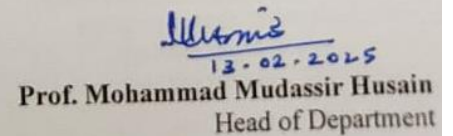 13.02.2025
Prof. Mohammad Mudassir Husain
Head of Department